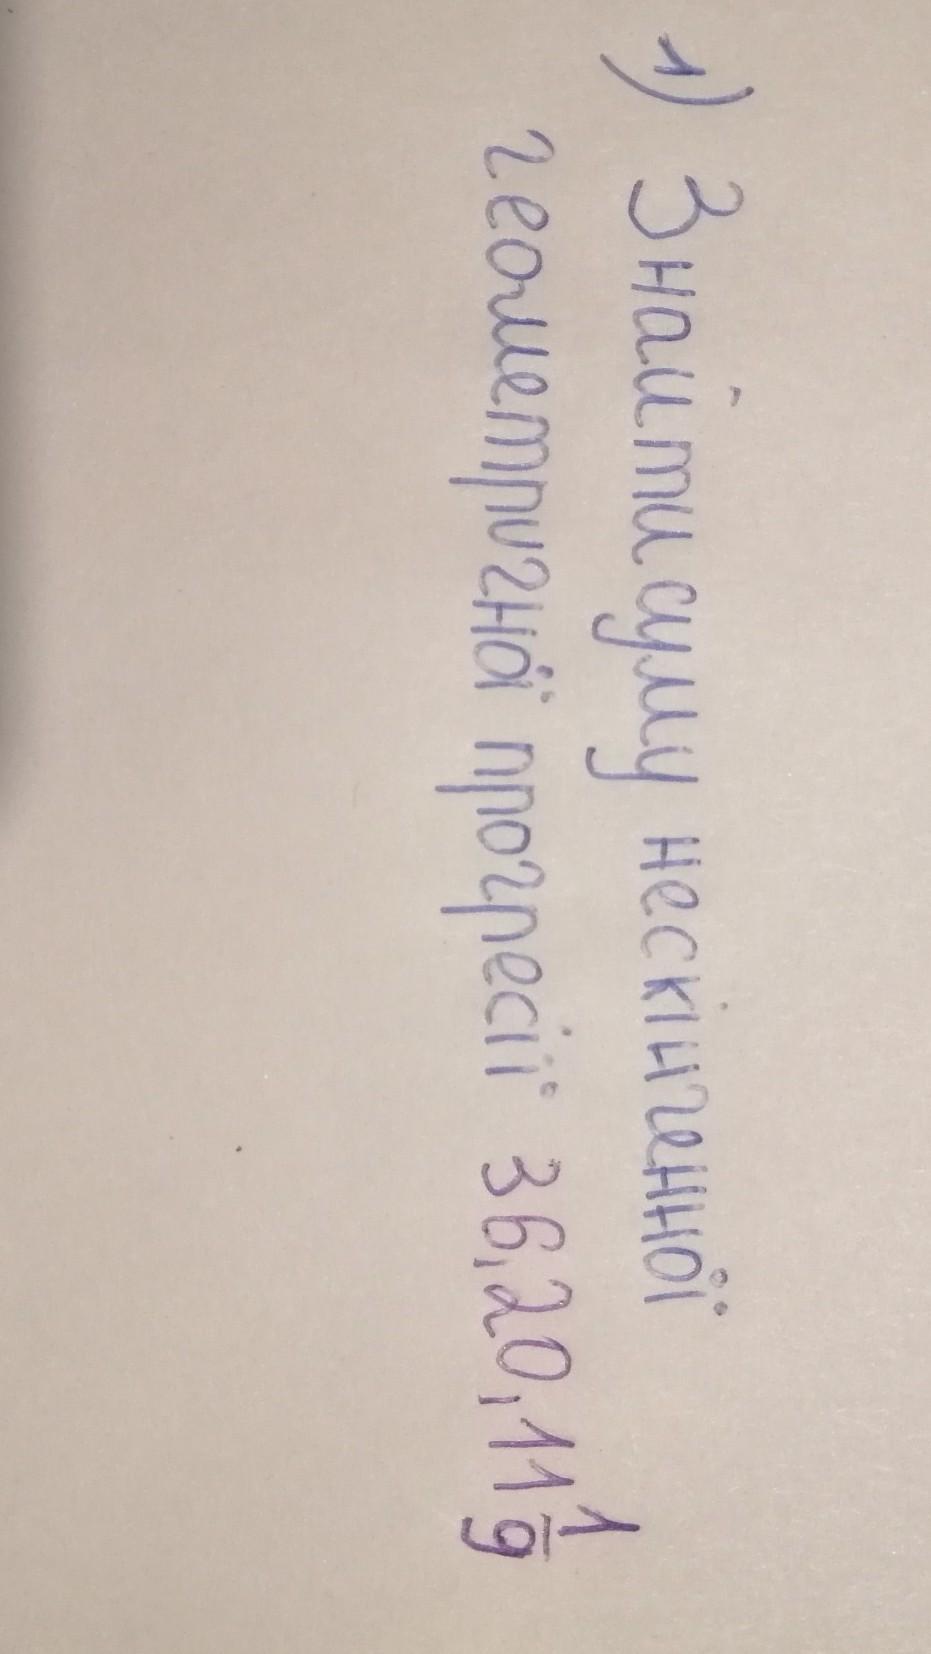 1) Знайти суму нескінченної
геометричної прогресії 36, 20, 11 1/9